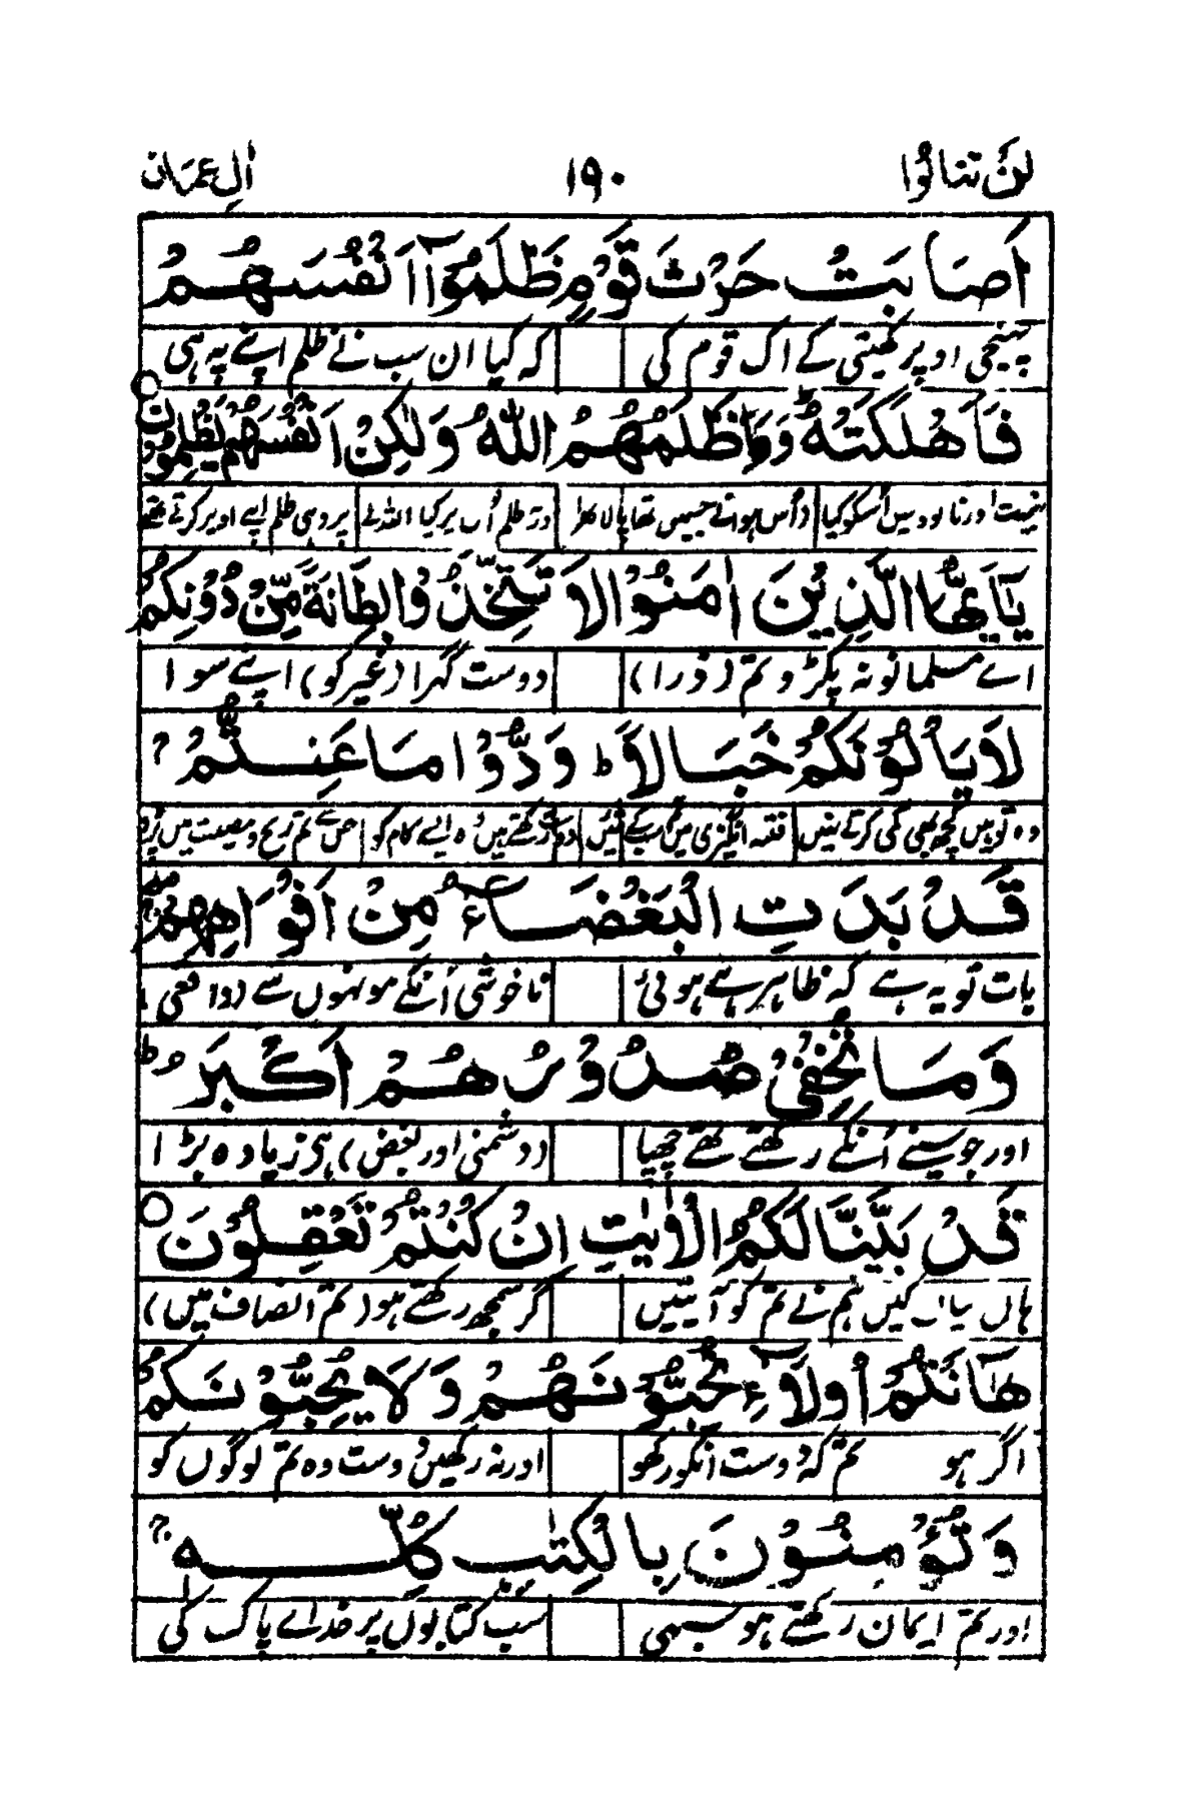 لن تنالوا ۱۹۰ اٰلِ عمران
اَصَابَتْ حَرْثَ قَوْمٍ ظَلَمُوْٓا اَنْفُسَهُمْ
پہنچی اوپر کھیتی کے اک قوم کی کہ کیا ان سب نے ظلم اپنے پہ ہی
فَاَهْلَكَتْهُ ؕ وَمَا ظَلَمَهُمُ اللّٰهُ وَلٰكِنْ اَنْفُسَهُمْ يَظْلِمُوْنَ ○
اُسکو کیا ظلم اُن پر کیا اللہ نے پر وہی ظلم اپنے اوپر کرتے تھے
يٰٓاَيُّهَا الَّذِيْنَ اٰمَنُوْا لَا تَتَّخِذُوْا بِطَانَةً مِّنْ دُوْنِكُمْ
اے مسلمانو نہ پکڑو تم (ذرا) دوست گہرا (غیر کو) اپنے سوا
لَا يَاْلُوْنَكُمْ خَبَالًا ؕ وَدُّوْا مَا عَنِتُّمْ ۚ
وہ تو ہیں کچھ بھی کمی کرتے نہیں فتنہ انگیزی میں رکھتے ہیں وہ ایسے کام کو جس سے تم رنج و مصیبت میں پڑو
قَدْ بَدَتِ الْبَغْضَآءُ مِنْ اَفْوَاهِهِمْ ۖۚ
بات تو یہ ہے کہ ظاہر ہے ہوئی ناخوشی اُنکے مونہوں سے (واقعی)
وَمَا تُخْفِيْ صُدُوْرُهُمْ اَكْبَرُ ؕ
اور جو سینے اُنکے رکھتے تھے چھپا (دشمنی اور بغض) ہی زیادہ بڑا
قَدْ بَيَّنَّا لَكُمُ الْاٰيٰتِ اِنْ كُنْتُمْ تَعْقِلُوْنَ ○
ہاں بیاں کیں ہم نے تم کو آیتیں گر سمجھ رکھتے ہو (تم انصاف میں)
هٰٓاَنْتُمْ اُولَآءِ تُحِبُّوْنَهُمْ وَلَا يُحِبُّوْنَكُمْ
اگر ہو تم کہ دوست انکو رکھو اور نہ رکھیں دوست وہ تم لوگوں کو
وَتُؤْمِنُوْنَ بِالْكِتٰبِ كُلِّهٖ ۚ
اور تم ایمان رکھتے ہو سبھی سب کتابوں پر خدائے پاک کی